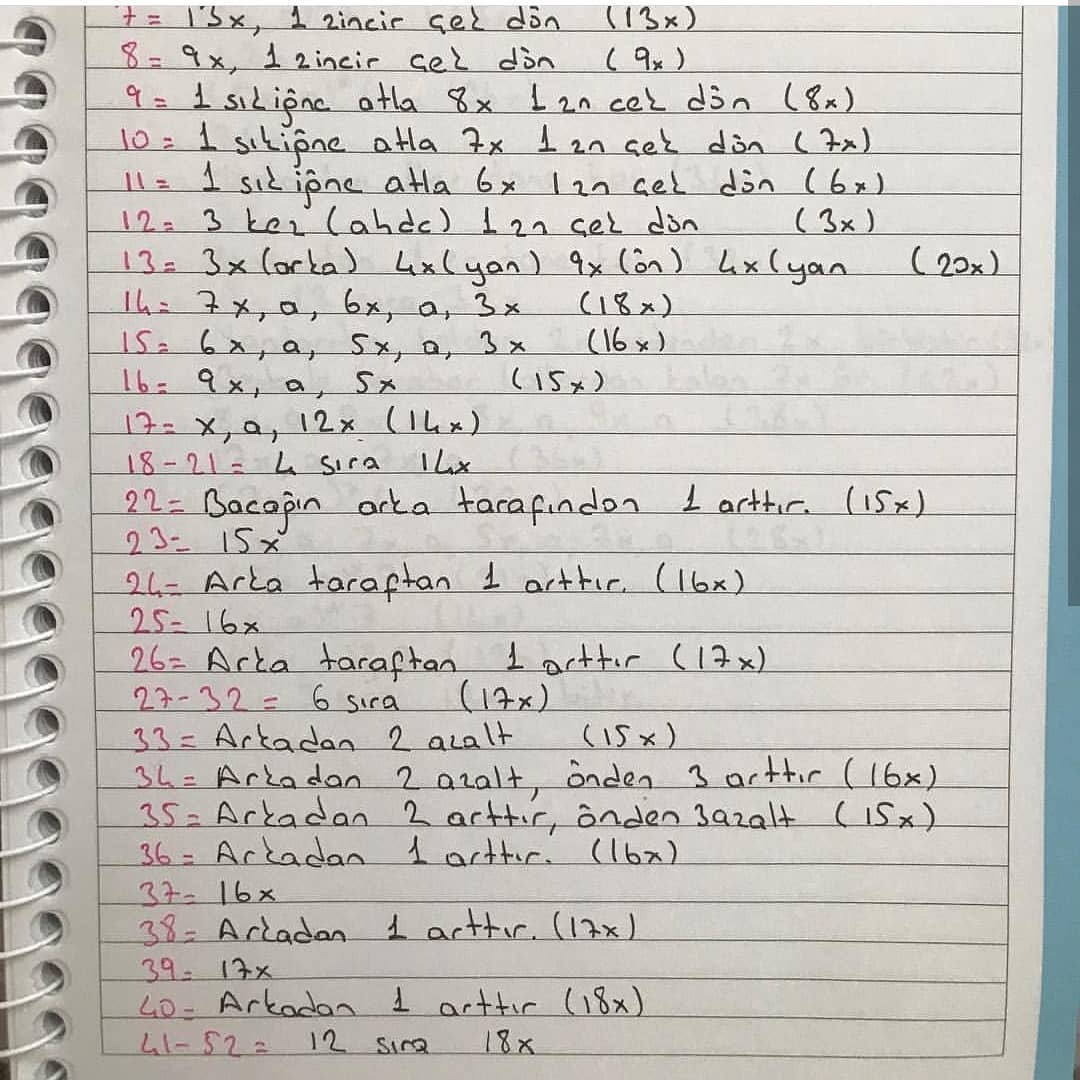 7= 13x, 1 zincir çek dön (13x)
8= 9x, 1 zincir çek dön (9x)
9= 1 sık iğne atla 8x 1 zn çek dön (8x)
10= 1 sık iğne atla 7x 1 zn çek dön (7x)
11= 1 sık iğne atla 6x 1 zn çek dön (6x)
12= 3 kez (ahdc) 1 zn çek dön (3x)
13= 3x (arka) 4x (yan) 9x (ön) 4x (yan (20x)
14= 7x, a, 6x, a, 3x (18x)
15= 6x, a, 5x, a, 3x (16x)
16= 9x, a, 5x (15x)
17= x, a, 12x (14x)
18-21= 4 sıra 14x
22= Bacağın arka tarafından 1 arttır. (15x)
23= 15x
24= Arka taraftan 1 arttır. (16x)
25= 16x
26= Arka taraftan 1 arttır (17x)
27-32= 6 sıra (17x)
33= Arkadan 2 azalt (15x)
34= Arkadan 2 azalt, önden 3 arttır (16x)
35= Arkadan 2 arttır, önden 3 azalt (15x)
36= Arkadan 1 arttır. (16x)
37= 16x
38= Arkadan 1 arttır. (17x)
39= 17x
40= Arkadan 1 arttır (18x)
41-52= 12 sıra 18x